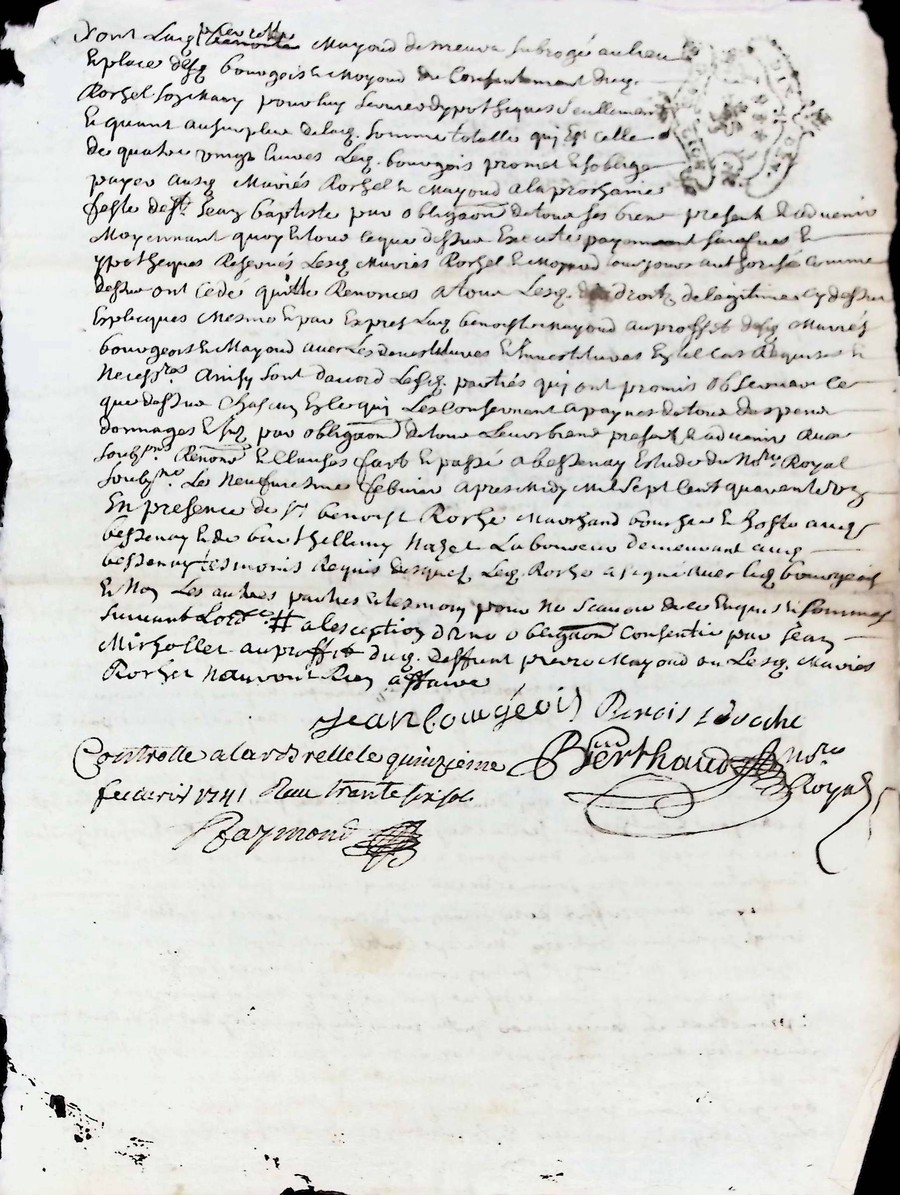 dont Laq. pierrette benoite Mayoud demeure subrogée au lieu
Et place desq. bourgeois et Mayoud du Consentement duq.
Rorhel pour luy servir dypotheques seullement
Et quant au surplus de laq. somme totalle qui est celle
de quatre vingt livres Leq. bourgeois promet et soblige
payer ausq. Mariés Rorhel et Mayoud a la prochaine
feste de st. Jean baptiste par obligaon de tous ses biens present et advenir
Moyennant quoy et tout ce que dessus Executé payement et
ypotheques Reservés Lesq. Mariés Rorhel et Mayoud tousjours authorisée comme
dessus ont cédé quitté Renoncés a tous Lesq. droits de legitime cy dessus
Expliqués Mesme et par Expres Laq. benoiste Mayoud au proffit desq. Mariés
bourgeois et Mayoud avec Les devestitures et Investitures En tel cas Requises et
Necess.res Ainsy sont daccord Lesq. parties qui ont promis observer ce
que dessus Chascun En ce qui Les Consernent a paynes de tous despens
dommages et par obligaon de tous Leurs biens present et advenir avec
soubm.ns Renon.ns et Clauses fait et passé a bessenay Estude du No.re Royal
soubz.né Le Neufviesme febvrier apres Midy Mil sept Cent quarente
En presence de s.r benoist Rorhe Marchand boucher et hoste auq.
bessenay et de barthellemy Nazet Laboureur demeurant auq.
bessenay tesmoins Requis Lesquels Leq. Rorhe a signé avec Leq. bourgeois
Et Non Les autres parties et tesmoin pour ne scavoir de ce Enquis et sommés
suivant Lord.ce # a lesception dune obligaon Consentie par Jean
Michollet au proffit duq. deffunt pierre Mayoud ou Lesq. Mariés
Rorhel Nauront Rien a ffaire
Jean bourgeois Benois Roche
Controlle a la rbrelle le quinzieme Berthaud No.re
fevrier 1741 Reçu trante six sols Royal
Raymond